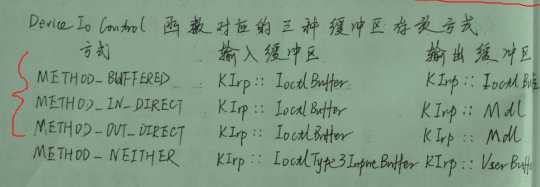 Device Io Control 函数对应的三种缓冲区存放方式
方式 输入缓冲区 输出缓冲区
METHOD_BUFFERED KIrp::IoctlBuffer KIrp::IoctlBuffe
METHOD_IN_DIRECT KIrp::IoctlBuffer KIrp::Mdl
METHOD_OUT_DIRECT KIrp::IoctlBuffer KIrp::Mdl
METHOD_NEITHER KIrp::IoctlType3InputBuffer KIrp::UserBuff